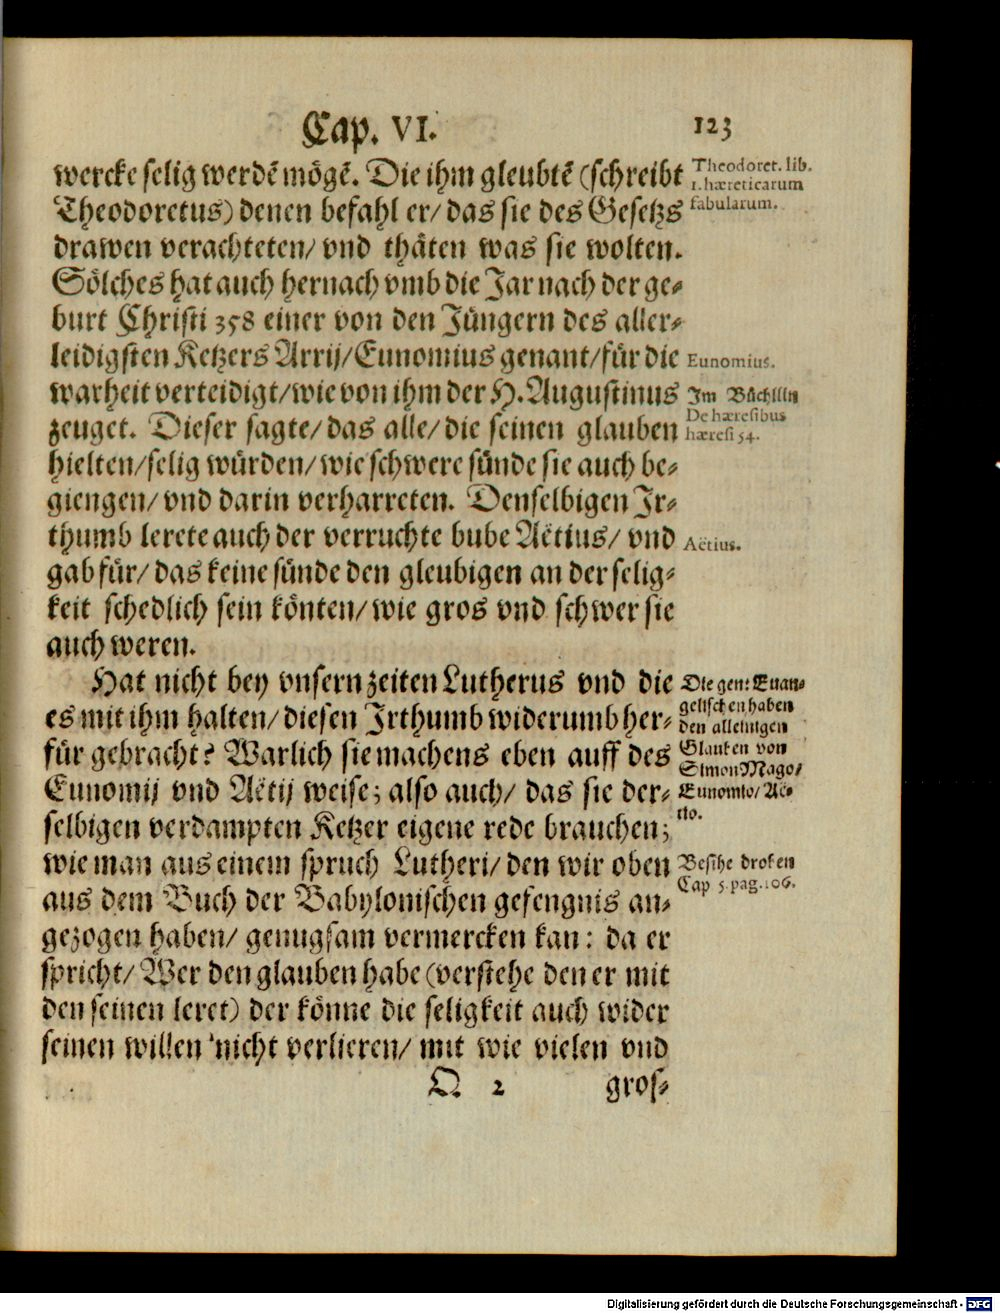 Cap. VI. 123
wercke selig werdẽ mögẽ. Die ihm gleubtẽ (schreibt
Theodoretus) denen befahl er/ das sie des Gesetzs
drawen verachteten/ vnd thäten was sie wolten.
Sölches hat auch hernach vmb die Jar nach der ge-
burt Christi 358 einer von den Jüngern des aller-
leidigsten Ketzers Arrij/ Eunomius genant/ für die
warheit verteidigt/ wie von ihm der H. Augustinus
zeuget. Dieser sagte/ das alle/ die seinen glauben
hielten/ selig würden/ wie schwere sünde sie auch be-
giengen/ vnd darin verharreten. Denselbigen Jr-
thumb lerete auch der verruchte bube Aëtius/ vnd
gab für/ das keine sünde den gleubigen an der selig-
keit schedlich sein könten/ wie gros vnd schwer sie
auch weren.
Hat nicht bey vnsern zeiten Lutherus vnd die
es mit ihm halten/ diesen Jrthumb widerumb her-
für gebracht? Warlich sie machens eben auff des
Eunomij vnd Aëtij weise; also auch/ das sie der-
selbigen verdampten Ketzer eigene rede brauchen;
wie man aus einem spruch Lutheri/ den wir oben
aus dem Buch der Babylonischen gefengnis an-
gezogen haben/ genugsam vermercken kan: da er
spricht/ Wer den glauben habe (verstehe den er mit
den seinen leret) der könne die seligkeit auch wider
seinen willen nicht verlieren/ mit wie vielen vnd
Q 2 gros-
Theodoret. lib.
1. hæreticarum
fabularum.
Eunomius.
Im Büchlin
De hæresibus
hæresi 54.
Aëtius.
Die gen: Euan-
gelischen haben
den alleinigen
Glauben von
Simon Mago/
Eunomio/ Aë-
tio.
Besihe droben
Cap 5. pag. 106.
Digitalisierung gefördert durch die Deutsche Forschungsgemeinschaft - DFG